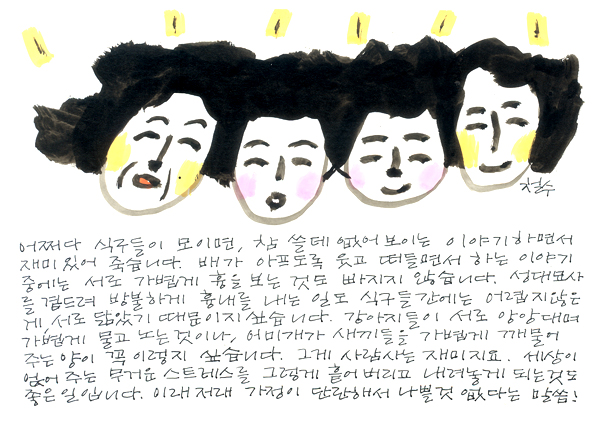 철수
어쩌다 식구들이 모이면, 참 쓸데 없어 보이는 이야기 하면서
재미있어 죽습니다. 배가 아프도록 웃고 떠들면서 하는 이야기
중에는 서로 가볍게 흉을 보는 것도 빠지지 않습니다. 성대모사
를 곁드려 방불하게 흉내를 내는 일도 식구들간에는 어렵지않은
게 서로 닮았기 때문이지 싶습니다. 강아지들이 서로 앙앙대며
가볍게 물고 노는 것이나, 어미개가 새끼들을 가볍게 깨물어
주는 양이 꼭 이렇지 싶습니다. 그게 사람사는 재미지요. 세상이
얹어 주는 무거운 스트레스를 그렇게 흩어버리고 내려놓게 되는것도
좋은 일입니다. 이래저래 가정이 단란해서 나쁠것 없다는 말씀!